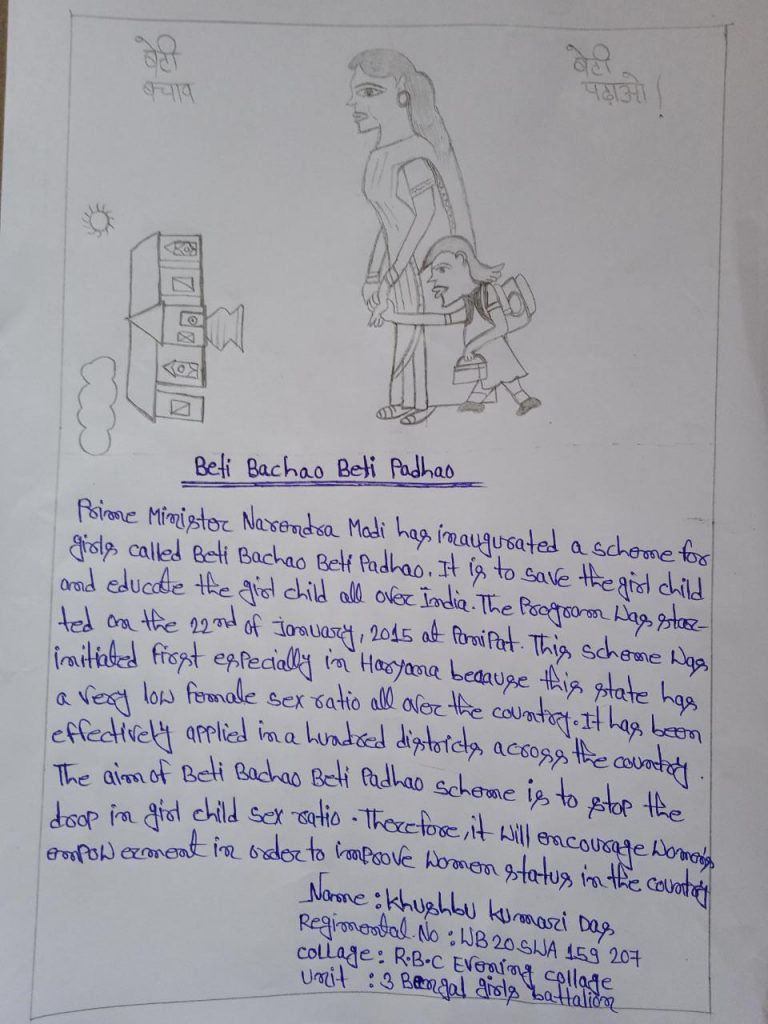 बेटी
बचाव
बेटी
पढ़ाओ!
Beti Bachao Beti Padhao
Prime Minister Narendra Modi has inaugurated a scheme for
girls called Beti Bachao Beti Padhao. It is to save the girl child
and educate the girl child all over India. The Program was star-
ted on the 22nd of January, 2015 at PaniPat. This scheme was
initiated first especially in Haryana because this state has
a very low female sex ratio all over the country. It has been
effectively applied in a hundred districts across the country.
The aim of Beti Bachao Beti Padhao scheme is to stop the
drop in girl child sex ratio. Therefore, it will encourage women's
empowerment in order to improve women status in the country
Name : Khushbu Kumari Das
Regimental. No : WB20SWA 159 207
collage : R.B.C Evening collage
Unit : 3 Bengal girls battalion